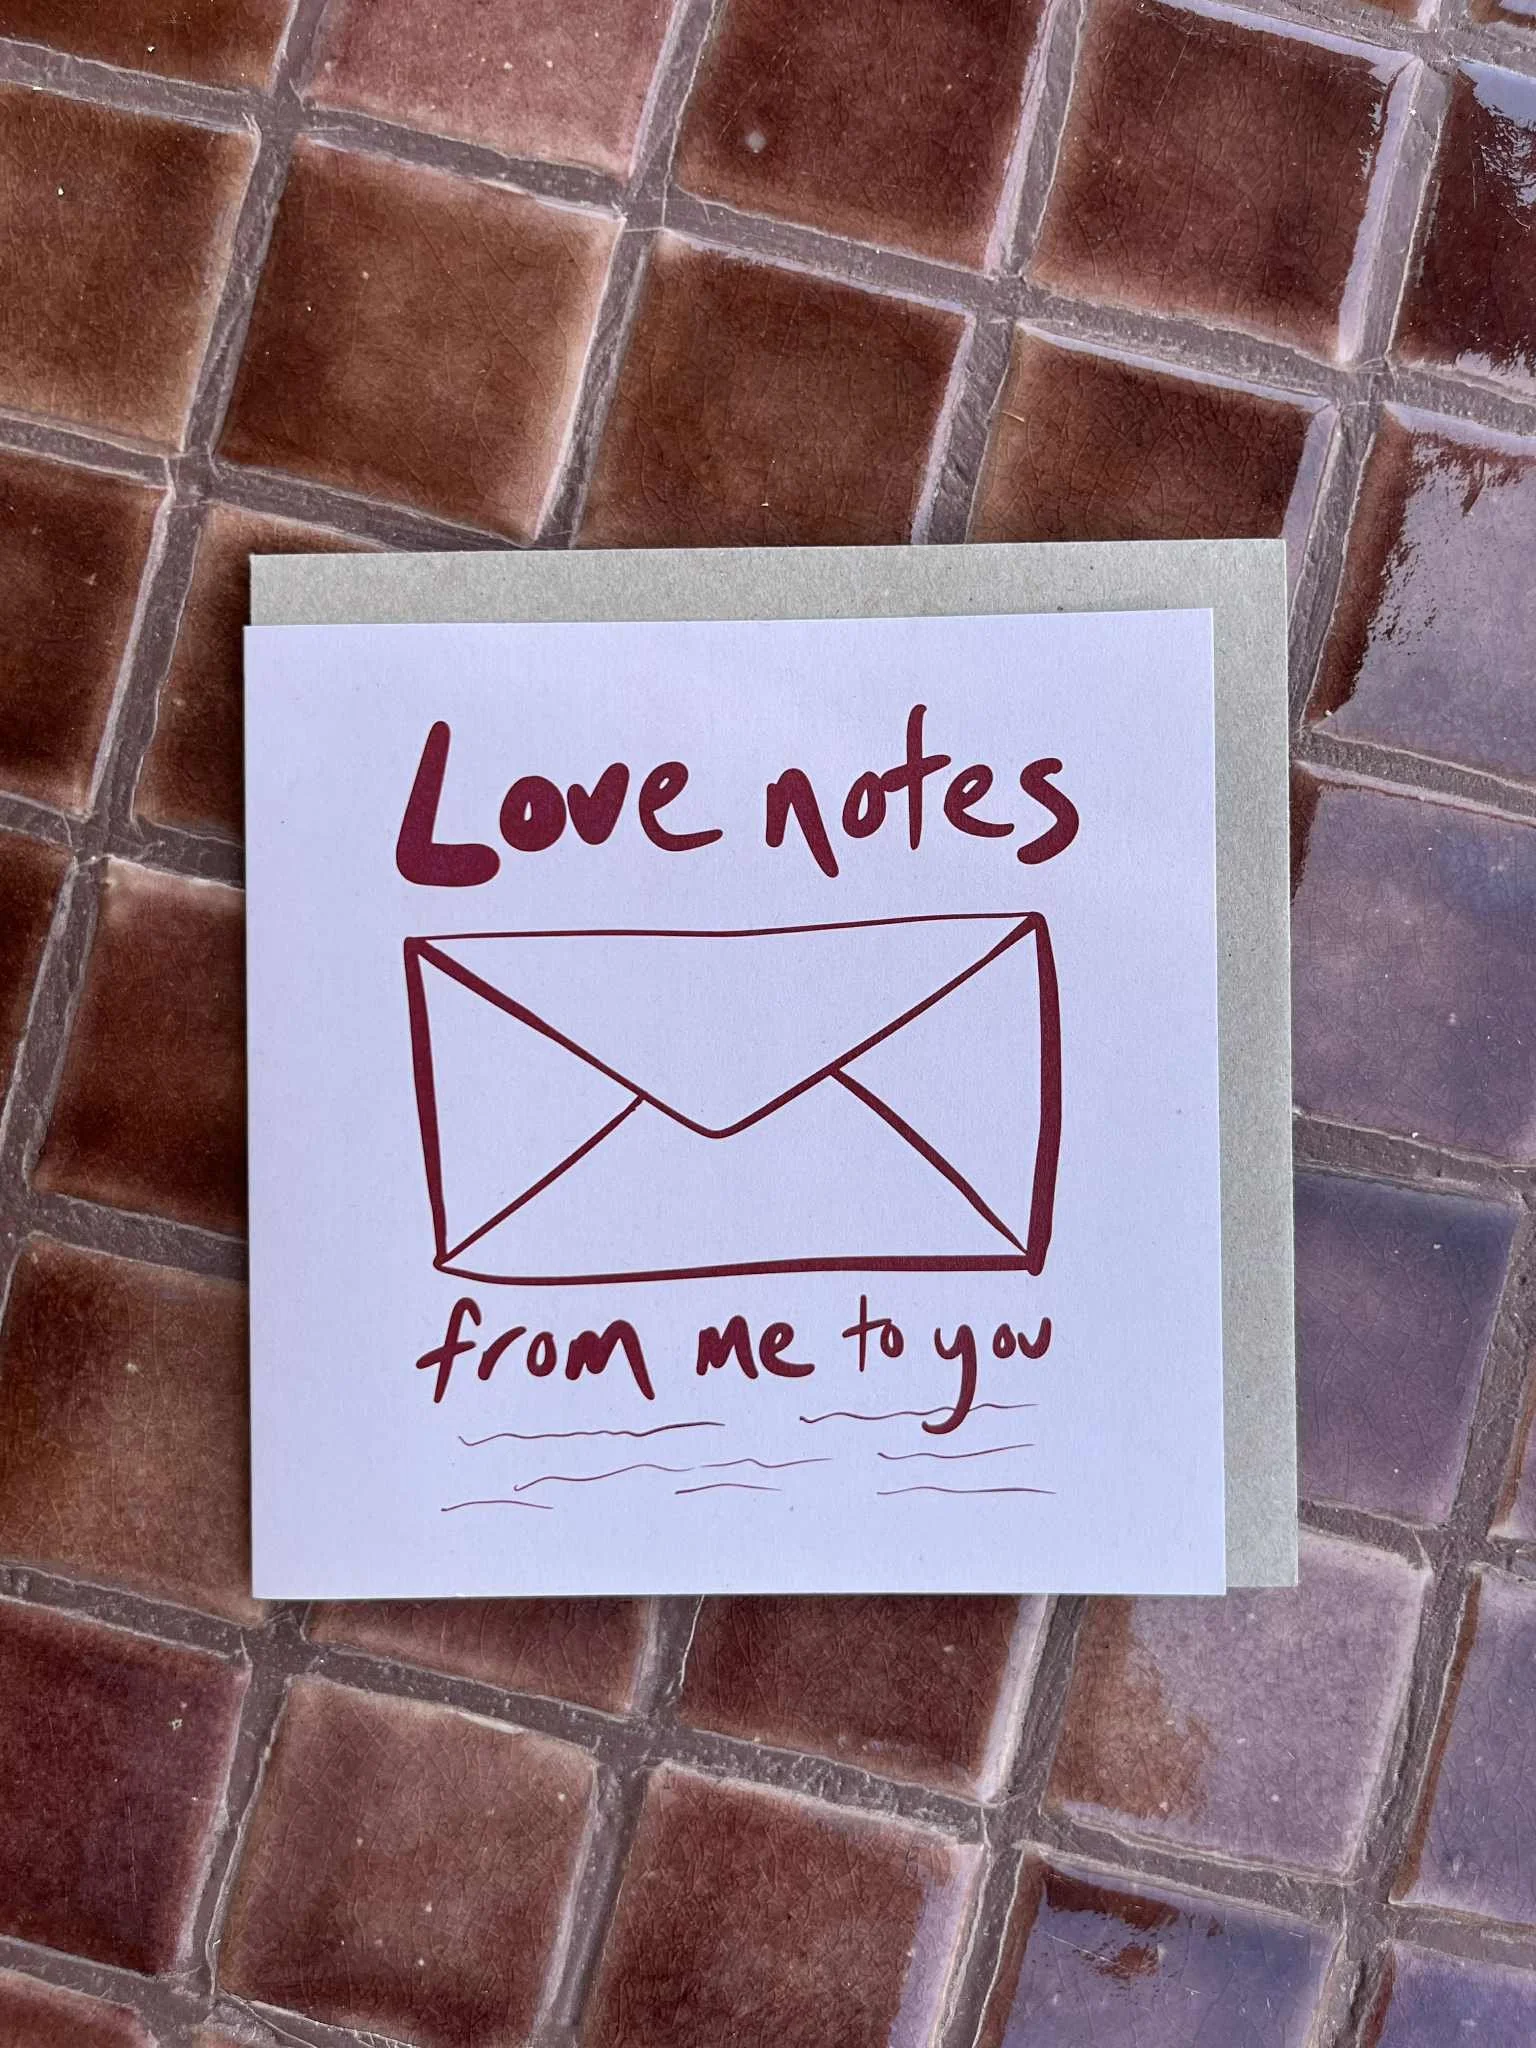 Love notes
from me to you